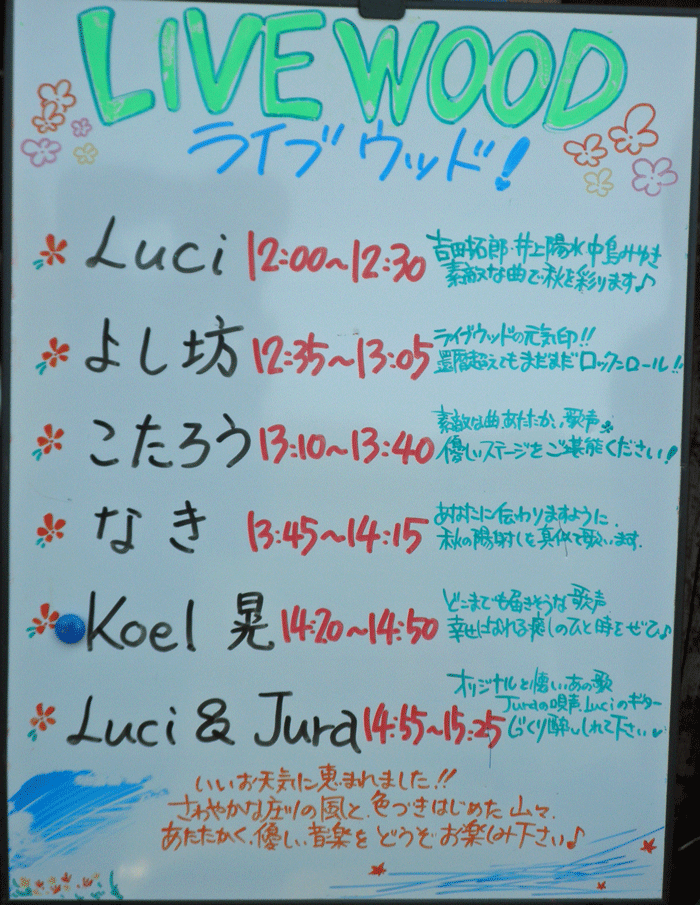 LIVE WOOD
ライブウッド!
Luci 12:00~12:30 吉田拓郎・井上陽水・中島みゆき
素敵な曲で秋を彩ります♪
よし坊 12:35~13:05 ライブウッドの元気印!!
還暦超えてもまだまだロックンロール!!
こたろう 13:10~13:40 素敵な曲、あたたかい歌声
優しいステージをご堪能ください!
なき 13:45~14:15 あなたに伝わりますように、
秋の陽射しを真似て歌います。
Koel 晃 14:20~14:50 どこまでも届きそうな歌声
幸せになれる癒しのひと時をぜひ♪
Luci & Jura 14:55~15:25 オリジナルと懐しいあの歌
Juraの唄声、Luciのギター
じっくり酔いしれて下さい
いいお天気に恵まれました!!
さわやかな庄川の風と、色づきはじめた山々、
あたたかく、優しい音楽をどうぞお楽しみ下さい♪